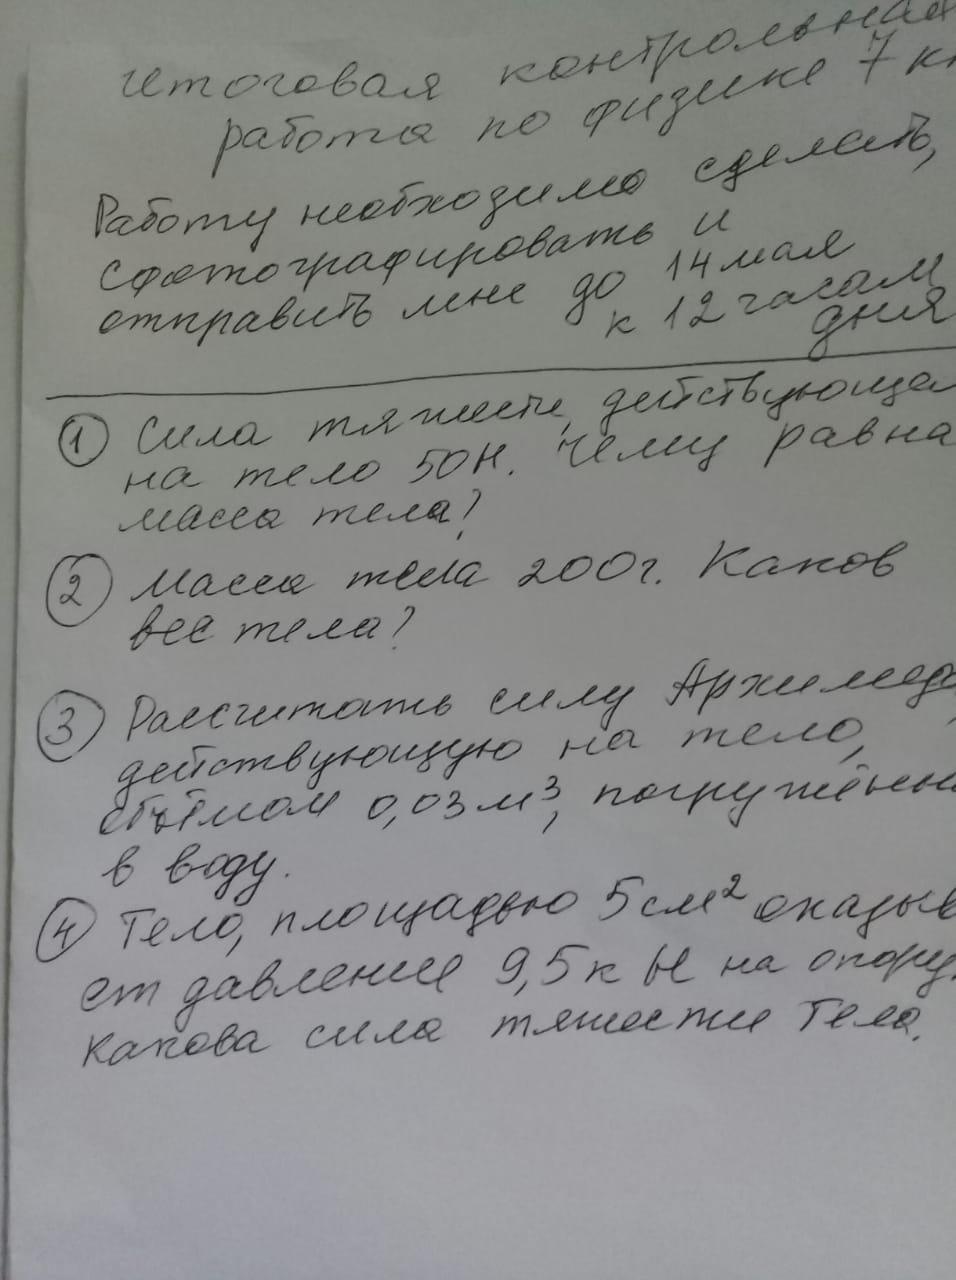 Итоговая контрольная
работа по физике 7 кл
Работу необходимо сделать,
сфотографировать и
отправить мне до 14 мая
к 12 часам
дня
① Сила тяжести, действующа
на тело 50Н. Чему равна
масса тела?
② Масса тела 200г. Каков
вес тела?
③ Рассчитать силу Архимеда,
действующую на тело,
объёмом 0,03 м³, погружённ
в воду.
④ Тело, площадью 5 см² оказыв
ет давление 9,5 кН на опору.
Какова сила тяжести Тела.